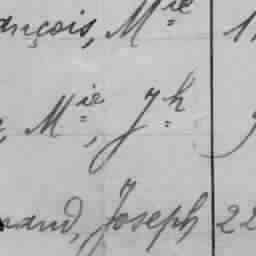 ançois, Mie 1
, Mie, Jh
rand, Joseph 22